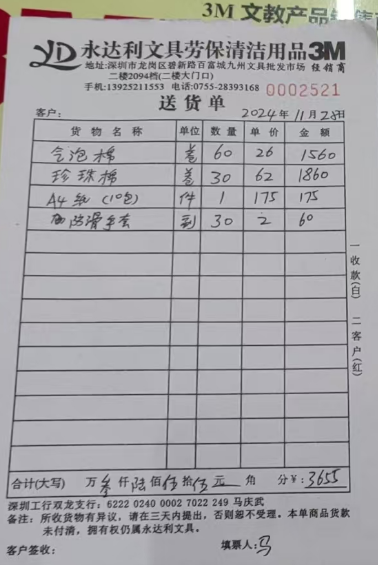 3M 文教产品
YD 永达利文具劳保清洁用品 3M
地址:深圳市龙岗区碧新路百富城九州文具批发市场 经销商
二楼2094档(二楼大门口)
手机:13925211553 电话:0755-28393168 0002521
送货单
客户: 2024年11月28日
货物名称 单位 数量 单价 金额
气泡棉 卷 60 26 1560
珍珠棉 卷 30 62 1860
A4纸 (10包) 件 1 175 175
防滑手套 30 2 60
一收款(白) 二客户(红)
合计(大写) 万叁仟陆佰伍拾伍元 角 分¥: 3655
深圳工行双龙支行: 6222 0240 0002 7022 249 马庆武
备注: 所收货物有异议, 请在三天内提出, 否则恕不受理。本单商品货款
未付清, 拥有权仍属永达利文具。
客户签收: 填票人: 马